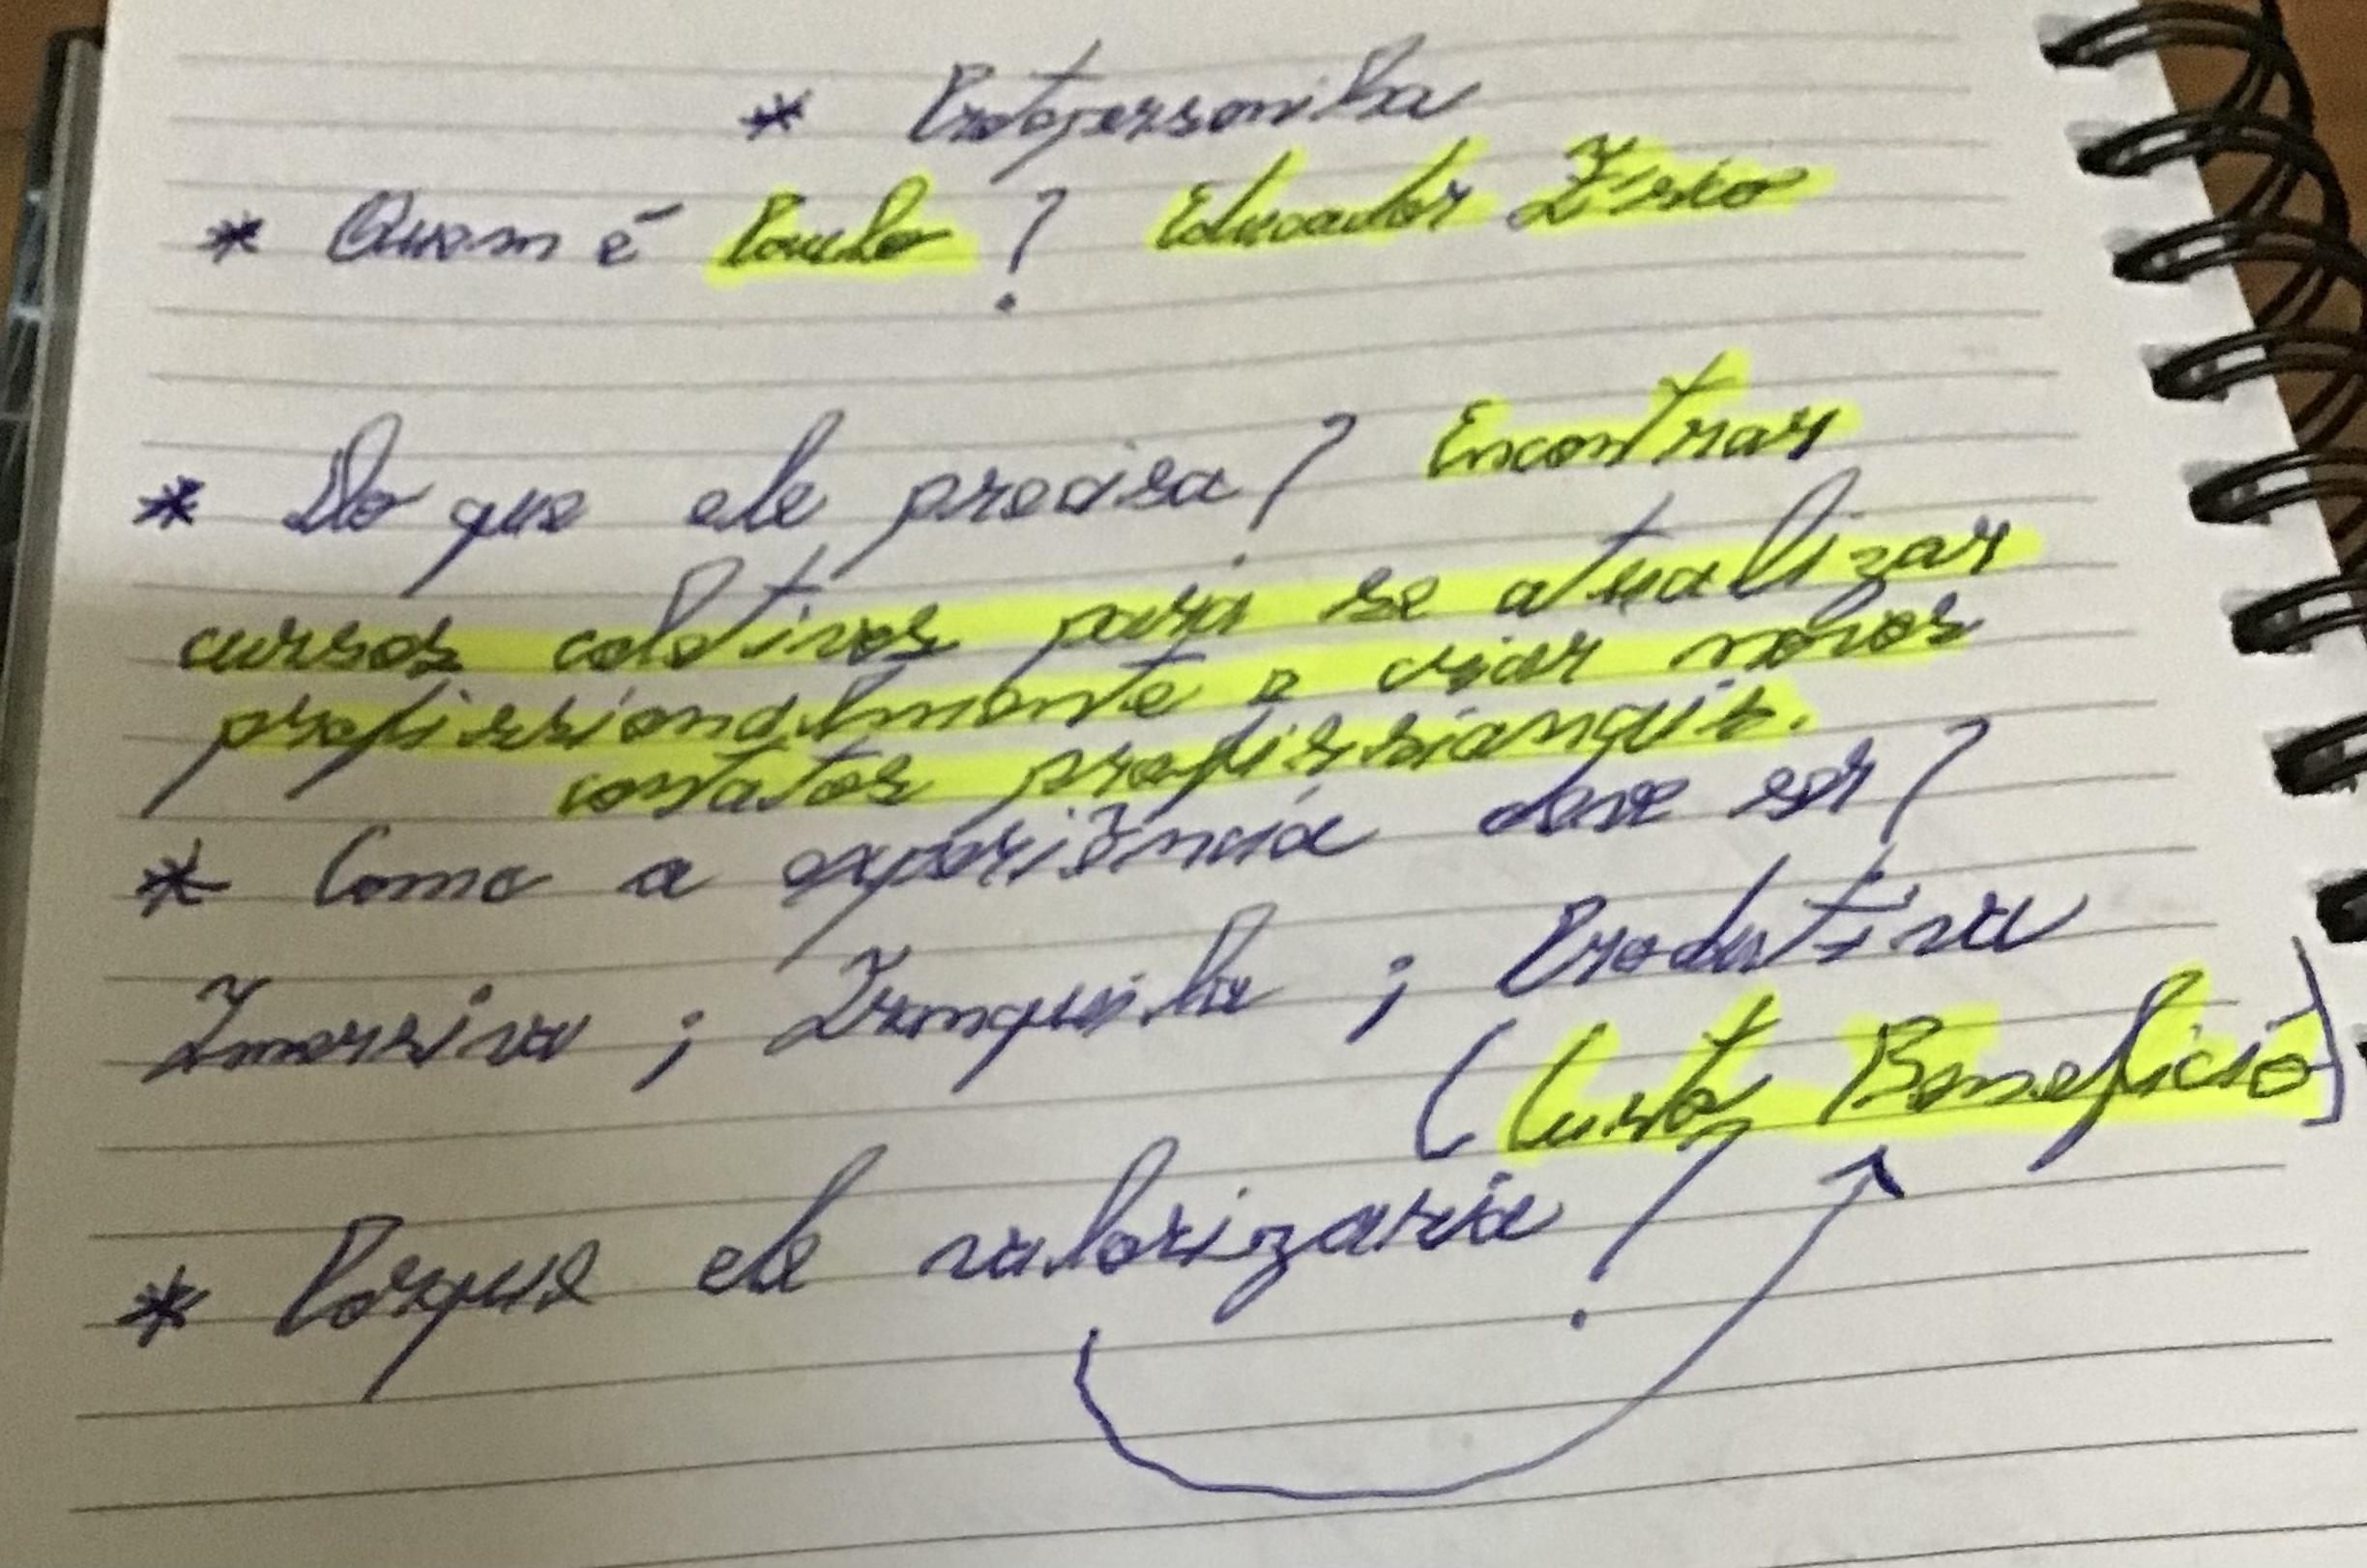 * Protopersonika
* Quem é Paulo? Educador Físico
* Do que ele precisa? Encontrar
cursos coletivos para se atualizar
profissionalmente e criar novos
contatos profissionais.
* Como a experiência deve ser?
Imersiva ; Tranquila ; Produtiva
(Custo Benefício)
* Porque ele valorizaria?